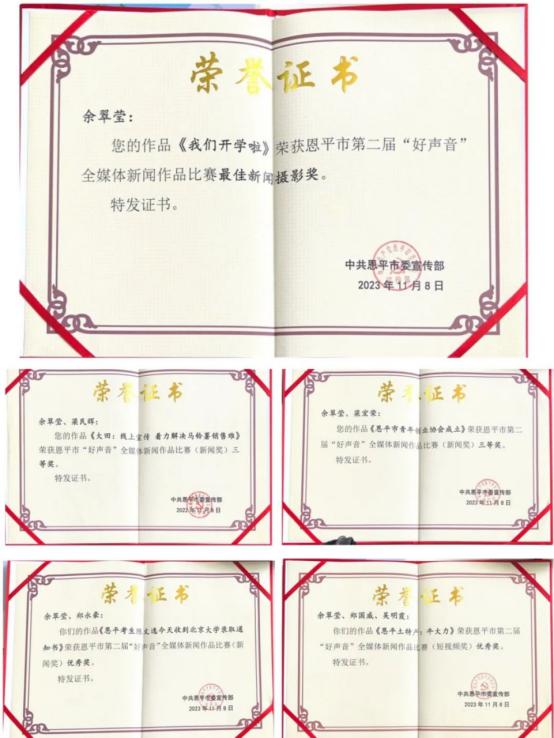 荣誉证书
余翠莹：
您的作品《我们开学啦》荣获恩平市第二届“好声音”
全媒体新闻作品比赛最佳新闻摄影奖。
特发证书。
中共恩平市委宣传部
2023年11月8日
荣誉证书
余翠莹、梁民辉：
您的作品《大田：线上宣传 着力解决马铃薯销售难》
荣获恩平市“好声音”全媒体新闻作品比赛（新闻奖）三
等奖。
特发证书。
中共恩平市委宣传部
2023年11月8日
荣誉证书
余翠莹、梁宏荣：
您的作品《恩平市青年创业协会成立》荣获恩平市第二
届“好声音”全媒体新闻作品比赛（新闻奖）三等奖。
特发证书。
中共恩平市委宣传部
2023年11月8日
荣誉证书
余翠莹、郑永豪：
你们的作品《恩平考生 文选今天收到北京大学录取通
知书》荣获恩平市第二届“好声音”全媒体新闻作品比赛（新
闻奖）优秀奖。
特发证书。
中共恩平市委宣传部
2023年11月8日
荣誉证书
余翠莹、郑国威、吴明霞：
你们的作品《恩平土特产：牛大力》荣获恩平市第二届
“好声音”全媒体新闻作品比赛（短视频奖）优秀奖。
特发证书。
中共恩平市委宣传部
2023年11月8日